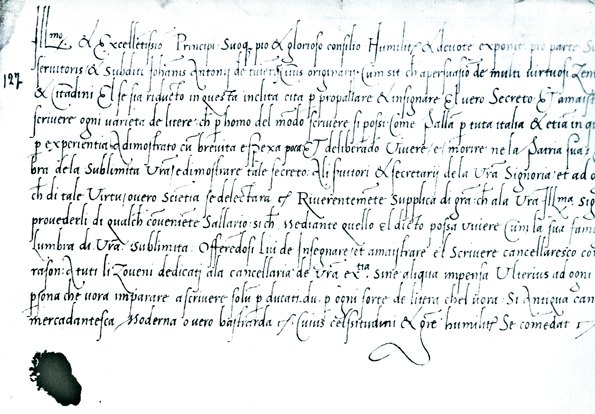 Ill.mo & Excellētissīo Principi Suoq pio & glorioso consilio Humilit & devote exponit pro parte
servitoris & Subditi Johānis Antonij de
& Citadini El se sia riducto in questa inclita cita p propalare & insignare El vero Secreto Et amaistrar
scrivere ogni varieta de litere: ch p homo del mōdo scrivere si possi: Come Palla p tuta italia & etiā in
p experientia dimostrato cū brevita e spexa poca ET deliberādo Vivere, et morire ne la Patria sua
bra de la Sublimita Vrā: e dimostrare tale secreto: Ali servitori & secretarij de la Vrā Signoria: et ad
ch di tale Virtu, overo Scietia se delectara Riverentemēte Supplica di grā: ch ala Vrā Ill.ma Sig
provederli di qualch cōveniēte Sallario: si ch Mediante quello El dicto possa vivere Cum la sua fam
Lumbra di Vrā Sublimita: Offerēdosi Lui de Insegnare: et amaistrare el Scrivere cancellaresco con
rason: A tuti li Zoveni dedicati ala cancellaria de Vrā Sine aliqua impensa Ulterius ad ogni
psona che vora imparare a scrivere solū p ducati du: p ogni sorte de litera chel vora: Si Antiqua can
mercadantesca Moderna overo bastarda Cuius celsitudini & grē humilit Se comēdat
127